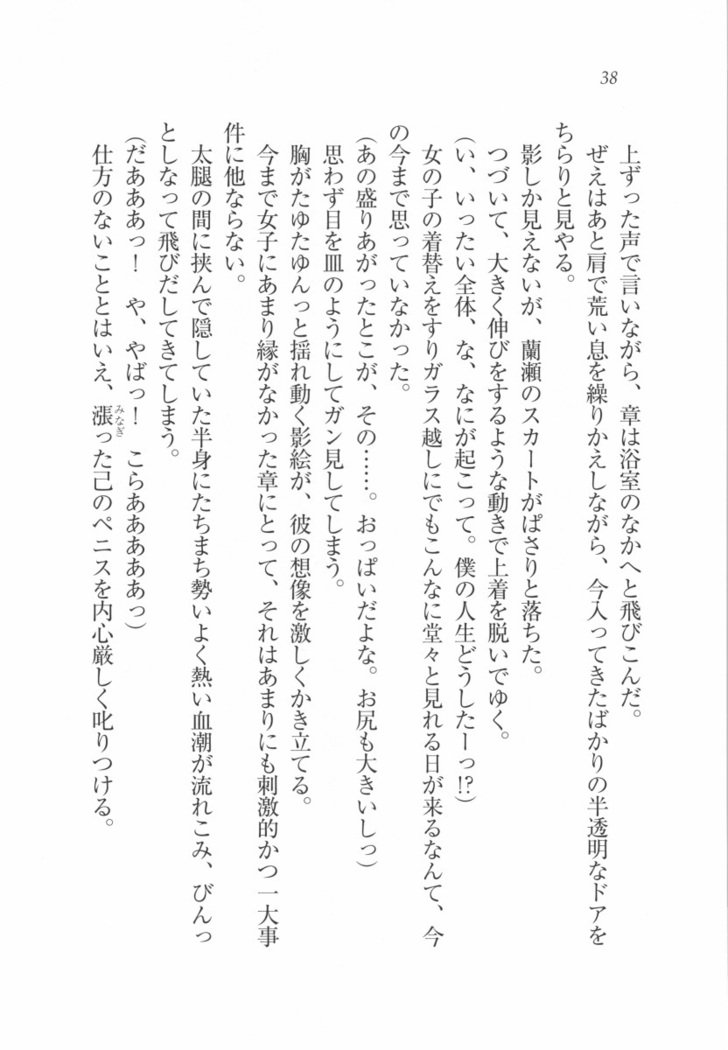 38
上ずった声で言いながら、章は浴室のなかへと飛びこんだ。
ぜえはあと肩で荒い息を繰りかえしながら、今入ってきたばかりの半透明なドアを
ちらりと見やる。
影しか見えないが、蘭瀬のスカートがぱさりと落ちた。
つづいて、大きく伸びをするような動きで上着を脱いでゆく。
(い、いったい全体、な、なにが起こって。僕の人生どうしたーっ!?)
女の子の着替えをすりガラス越しにでもこんなに堂々と見れる日が来るなんて、今
の今まで思っていなかった。
(あの盛りあがったとこが、その……。おっぱいだよな。お尻も大きいしっ)
思わず目を皿のようにしてガン見してしまう。
胸がたゆたゆんっと揺れ動く影絵が、彼の想像を激しくかき立てる。
今まで女子にあまり縁がなかった章にとって、それはあまりにも刺激的かつ一大事
件に他ならない。
太腿の間に挟んで隠していた半身にたちまち勢いよく熱い血潮が流れこみ、びんっ
としなって飛びだしてきてしまう。
(だあああっ!　や、やばっ!　こらあああああっ)
仕方のないこととはいえ、漲みなぎった己のペニスを内心厳しく叱りつける。